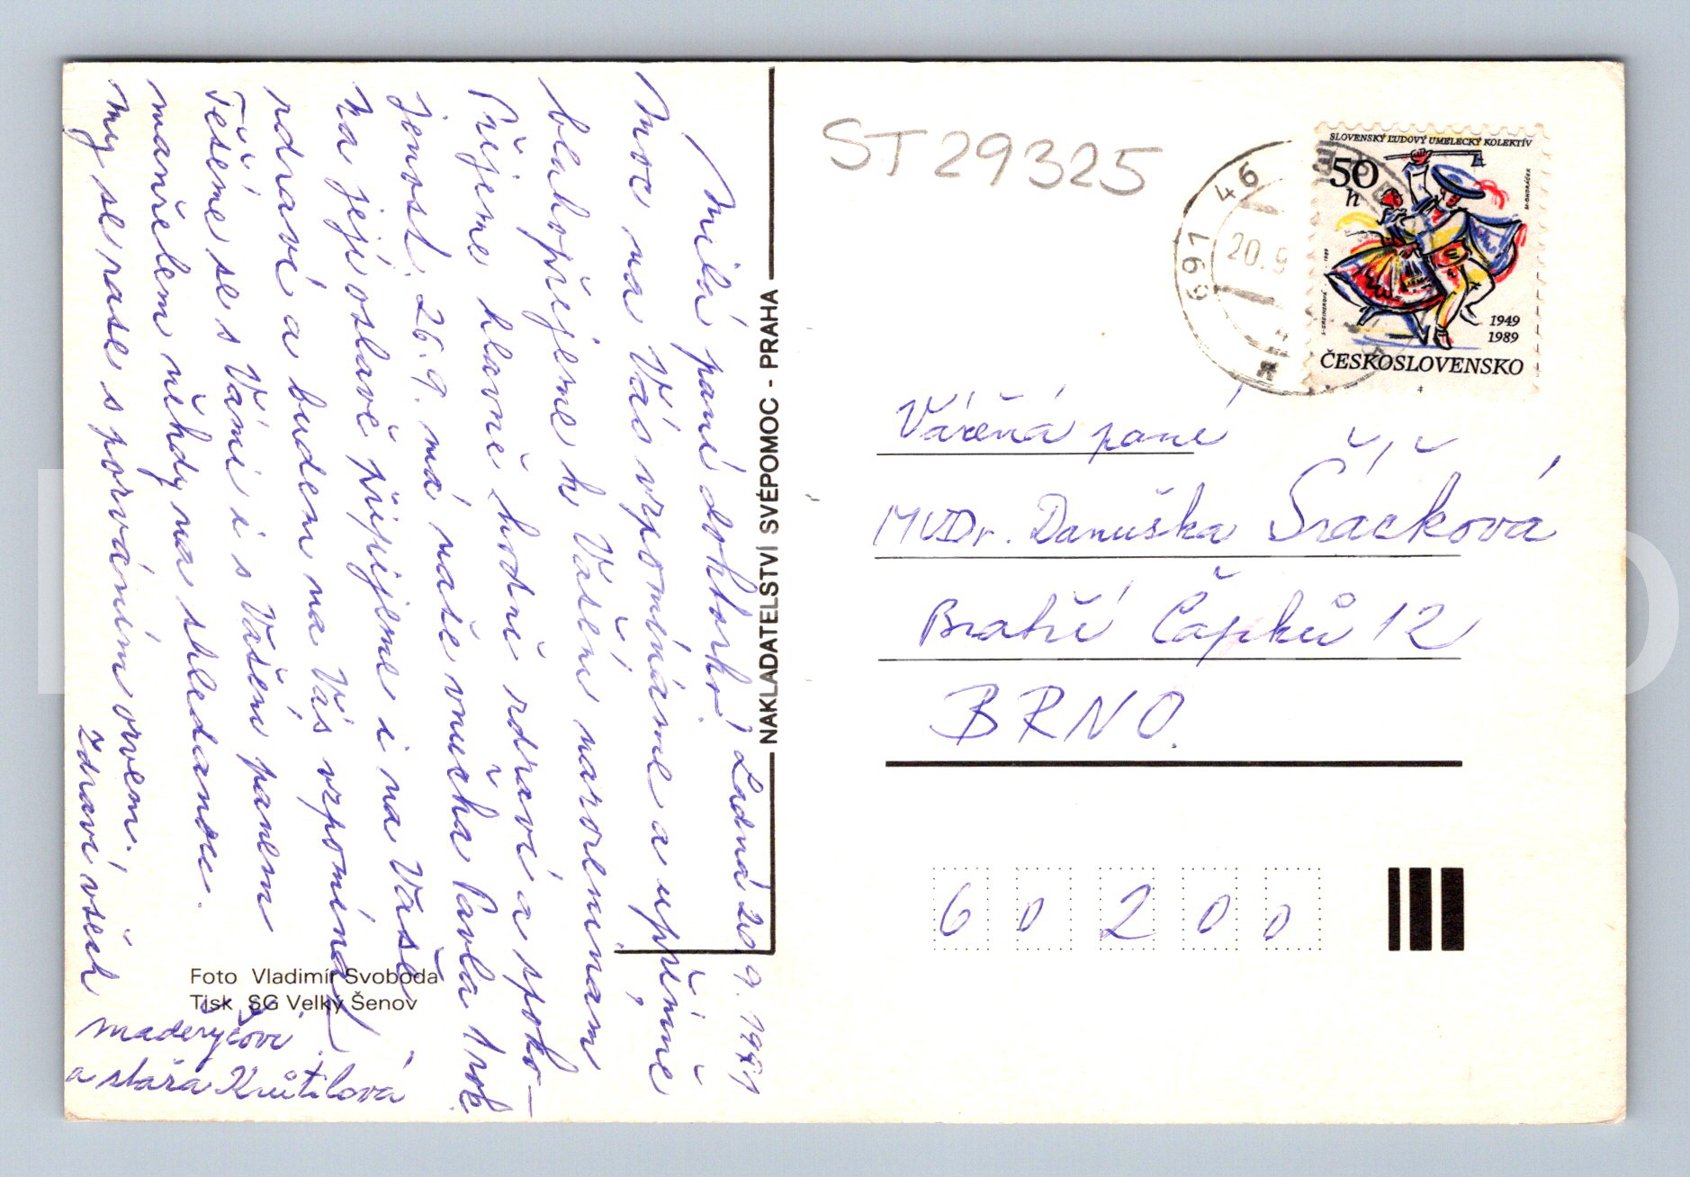 Milá paní doktorko! Ladná 20. 9. 1991
Moc na Vás vzpomínáme a upřímně
blahopřejeme k Vašim narozeninam
Přejeme hlavně hodně zdraví a spoko-
jenost. 26. 9. má naše vnučka Pavla 1 rok.
Na její oslavě připijeme i na Vaše
zdraví a budem na Vás vzpomínat
Těšíme se s Vámi i s Vašim panem
manželem někdy na shledanou.
my se zase s pozváním ozvem.
Zdraví všech
Maděryčovi
a stařa Krůtilová
Foto Vladimír Svoboda
Tisk SG Velký Šenov
NAKLADATELSTVÍ SVÉPOMOC - PRAHA
ST29325
691 46
20.9
SLOVENSKÝ ĽUDOVÝ UMELECKÝ KOLEKTÍV
50
h
1949
1989
ČESKOSLOVENSKO
4
Vážená paní
MUDr. Danuška Sráčková
Bratří Čapků 12
BRNO.
602 00